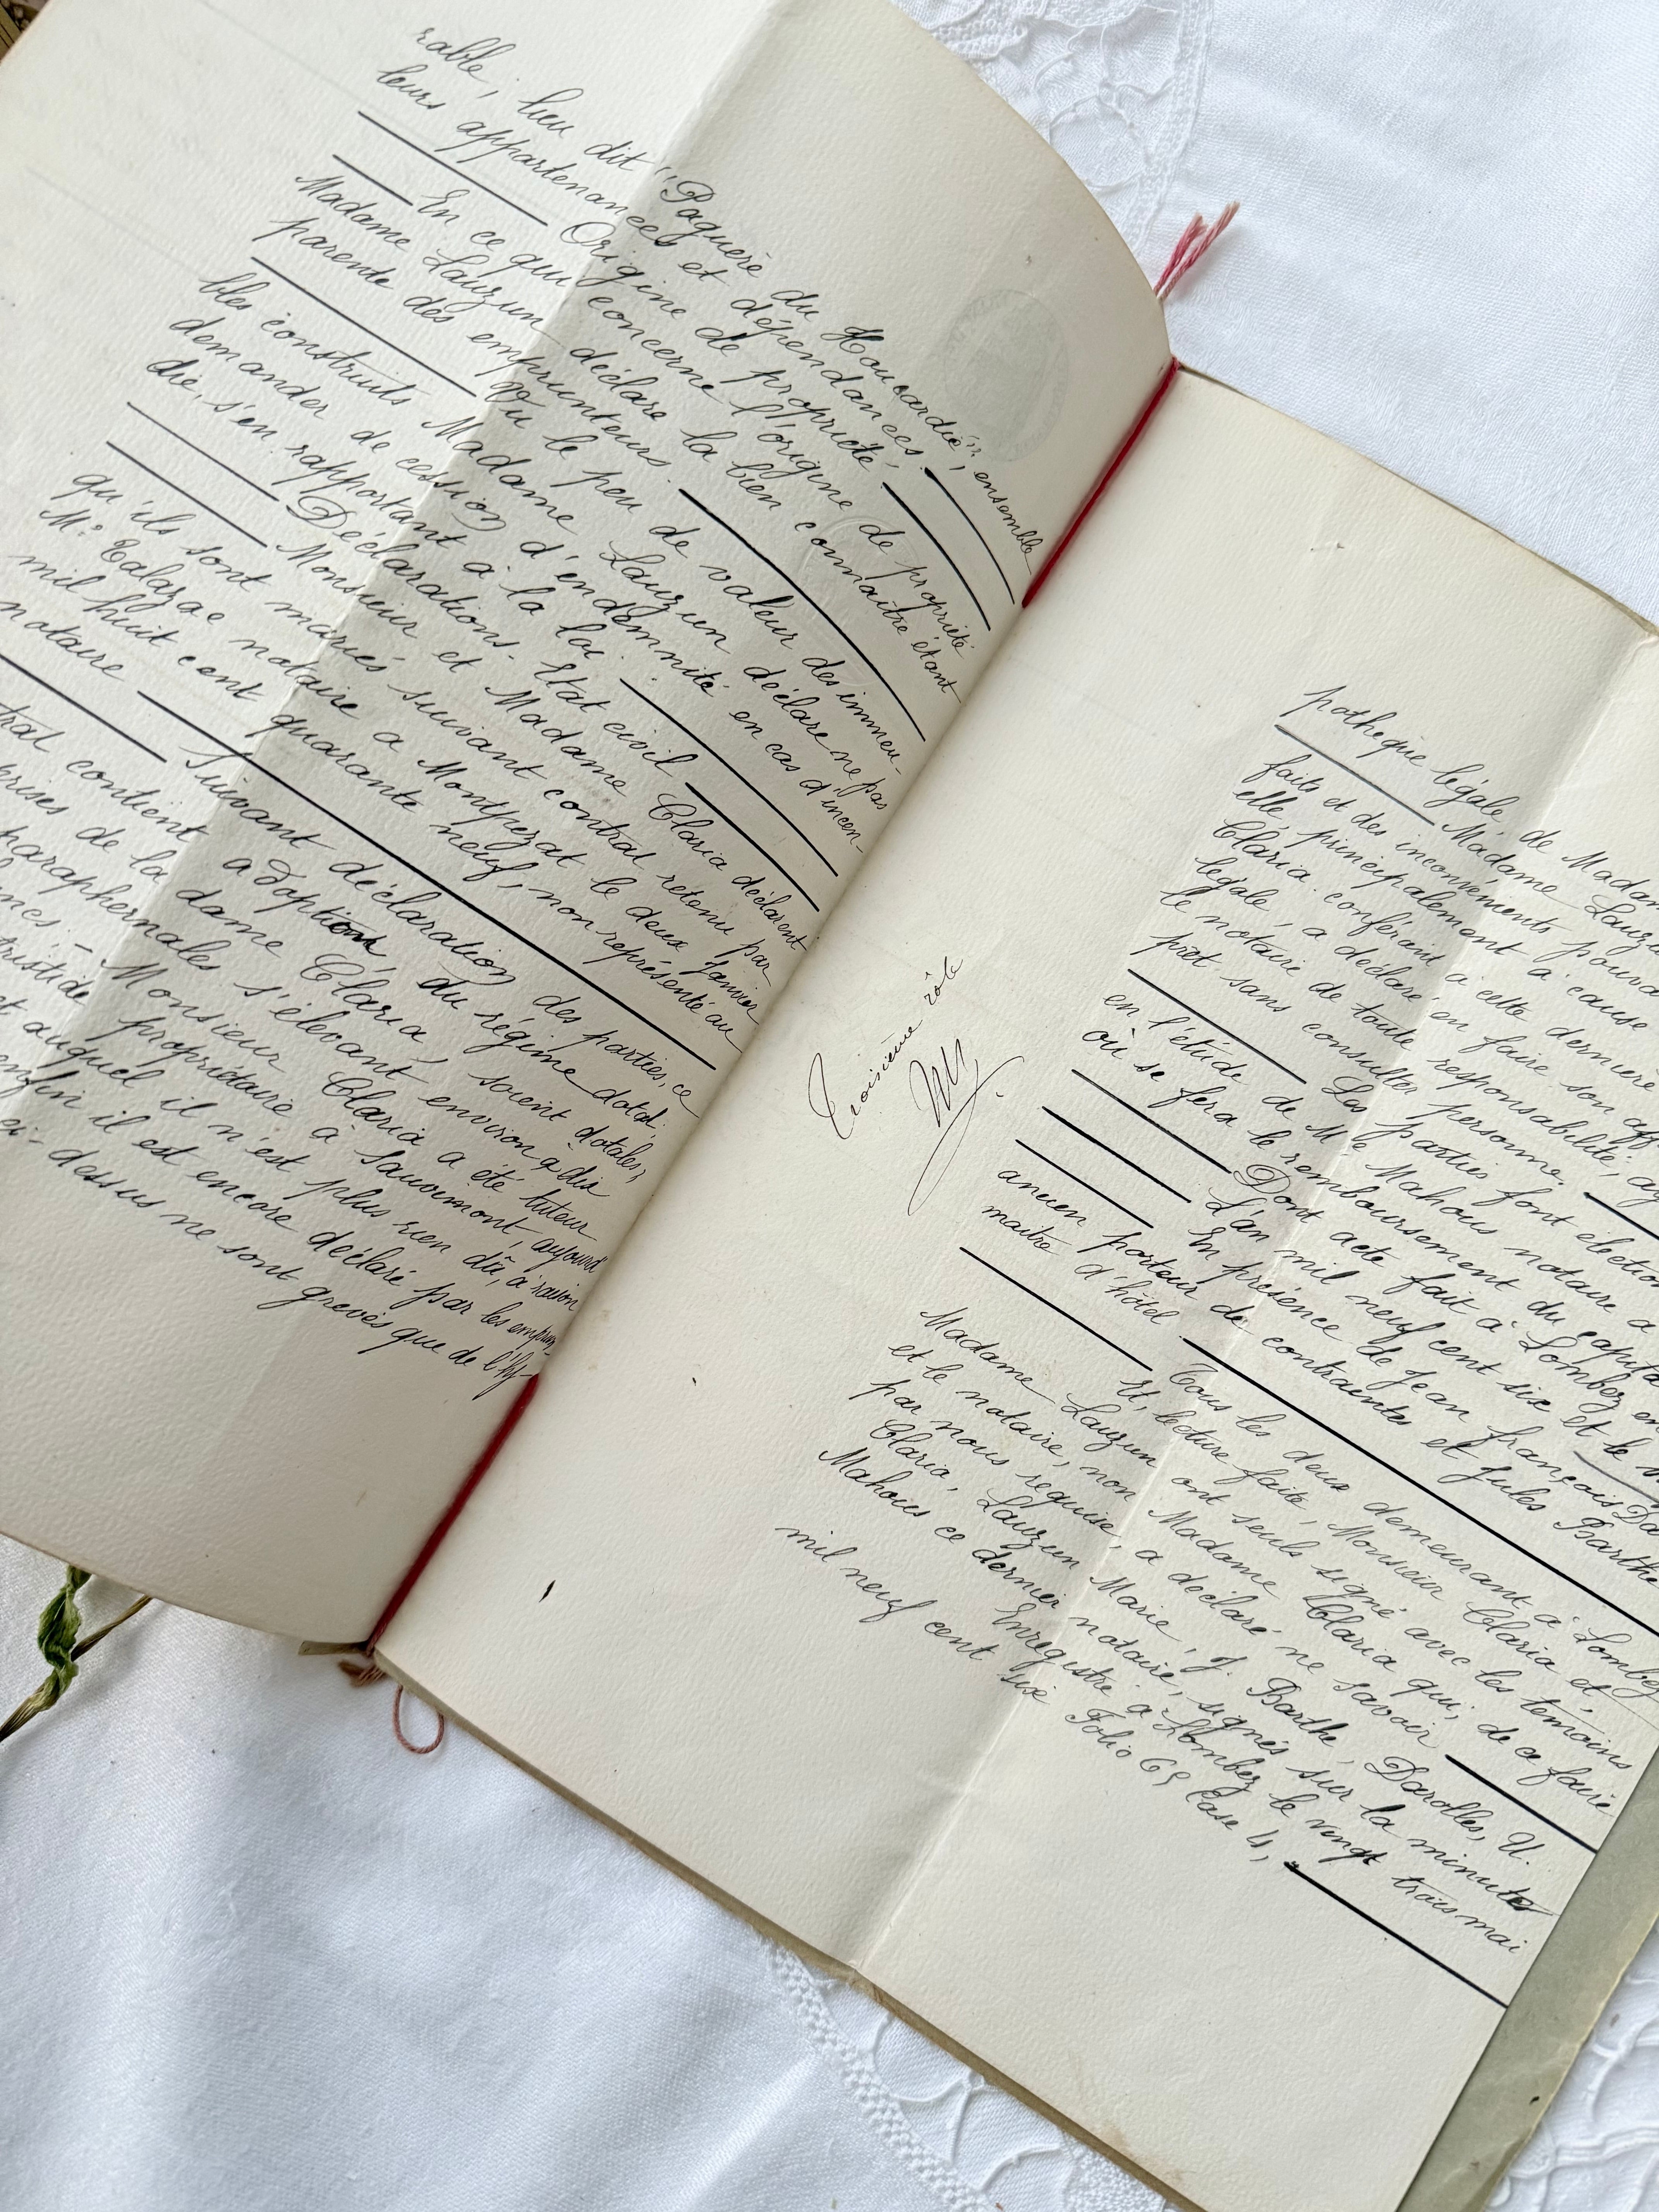 rable, lieu dit "Paguère du Houcardié", ensemble
leurs appartenances et dépendances.
Origine de propriété.
En ce qui concerne l'origine de propriété
Madame Lauzun déclare la bien connaitre étant
parente des emprunteurs.
Vu le peu de valeur des immeu-
bles construits Madame Lauzun déclare ne pas
demander de cession d'indemnité en cas d'incen-
die, s'en rapportant à la loi.
Déclarations. Etat civil
Monsieur et Madame Claria déclarent
qu'ils sont mariés suivant contrat retenu par
Me Talazac notaire à Montpezat le deux janvier
mil huit cent quarante neuf, non représenté au
notaire
Suivant déclaration des parties, ce
trat contient adoption du régime dotal,
prises de la dame Claria, soient dotales,
paraphernales s'élevant environ à dix
Monsieur Claria a été tuteur
tristide propriétaire à Sauvimont, aujourd'
et auquel il n'est plus rien dû, à raison
enfin il est encore déclaré par les emprun-
ci-dessus ne sont grevés que de l'hy-
Troisième rôle
pothèque légale de Madam
Madame Lauzu
faits et des inconvénients pouva
elle principalement à cause
Claria conférant à cette dernière
légale, a déclaré en faire son aff
le notaire de toute responsabilité, ay
prêt sans consulter personne.
Les parties font élection
en l'étude de Me Mahous notaire à
où se fera le remboursement du capita
Dont acte fait à Lombez en
L'an mil neuf cent six et le
En présence de Jean François Da
ancien porteur de contraintes et Jules Barthe
maitre d'hôtel
Tous les deux demeurant à Lombez
Et, lecture faite, Monsieur Claria et,
Madame Lauzun ont seuls signé avec les témoins
et le notaire, non Madame Claria qui, de ce faire
par nous requise, a déclaré ne savoir
Claria, Lauzun Marie, J. Barthe, Darolles, U.
Mahous ce dernier notaire, signés sur la minute
Enregistré à Lombez le vingt trois mai
mil neuf cent six Folio 69 Case 4,